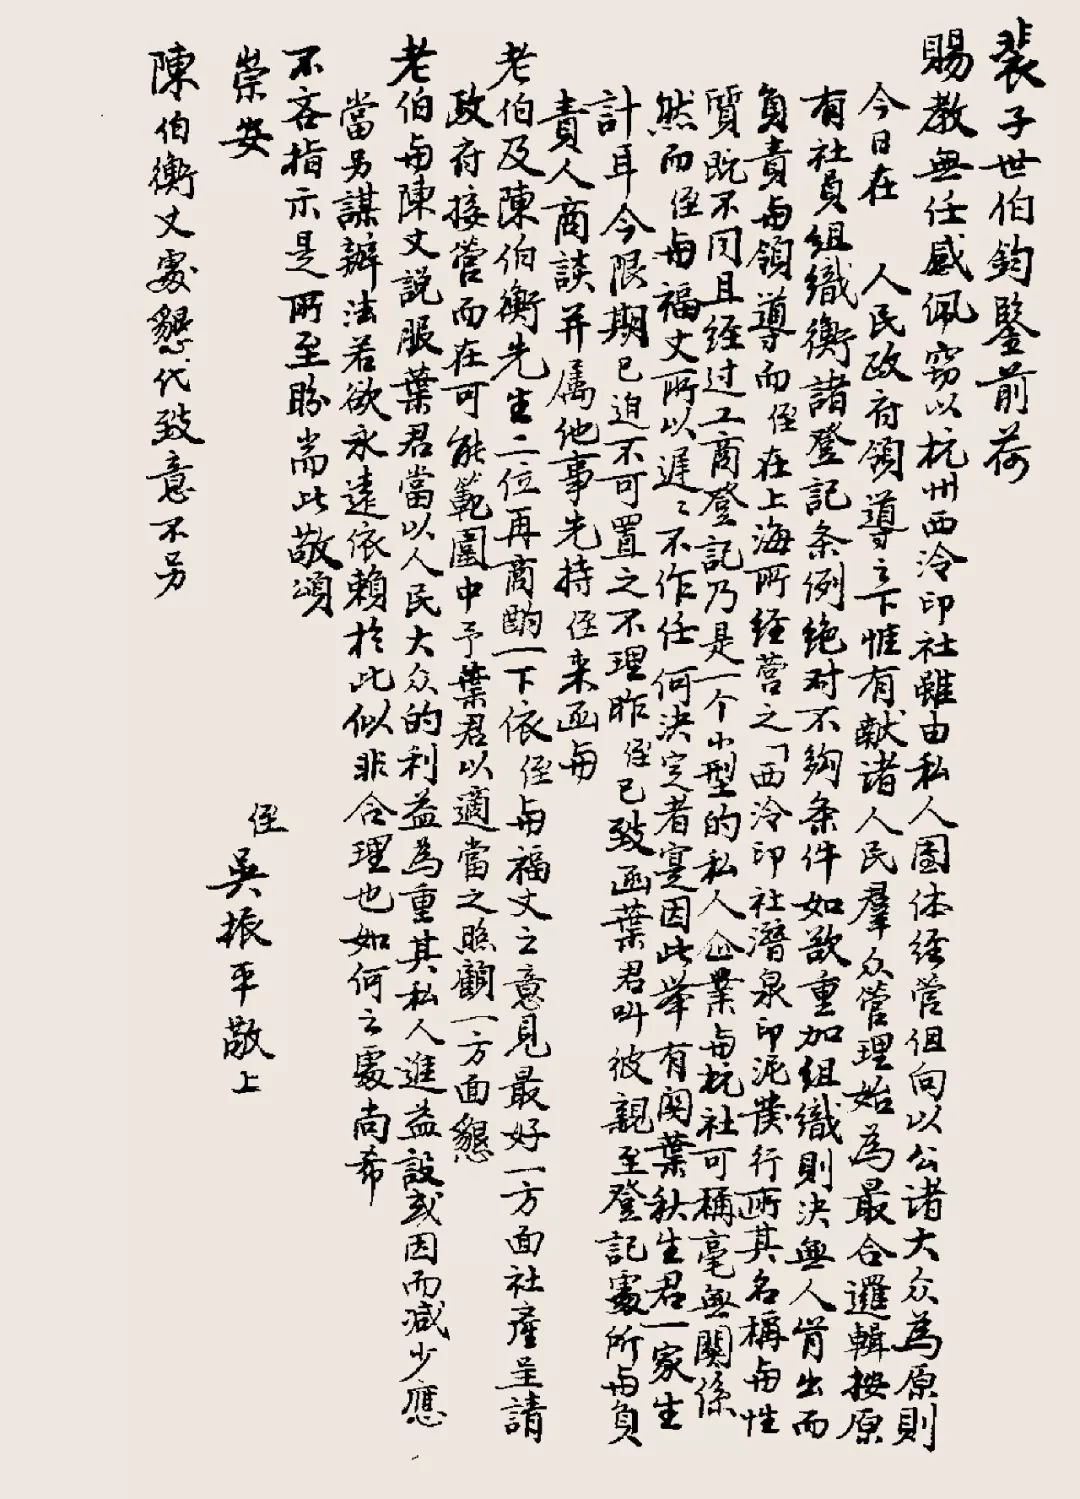 裴子世伯鈞鑒前荷
賜教無任感佩竊以杭州西泠印社雖由私人團体經營但向以公諸大众為原則
今日在 人民政府領導之下惟有献諸人民羣众管理始為最合邏輯按原
有社員組織衡諸登記条例绝对不夠条件如欲重加組織則決無人肯出而
負責与領導而侄在上海所経营之「西泠印社潛泉印泥發行所其名稱与性
質既不同且経过工商登記乃是一个小型的私人企業与杭社可稱毫無關係
然而侄与福丈所以遲〻不作任何決定者寔因此举有関葉秋生君一家生
計耳今限期已迫不可置之不理昨侄已致函葉君叫彼親至登記處所与負
責人商談并属他事先持侄来函与
老伯及陳伯衡先生二位再商酌一下依侄与福丈之意見最好一方面社產呈請
政府接营而在可能範圍中予葉君以適當之照顧一方面懇
老伯与陳丈説服葉君當以人民大众的利益為重其私人進益設或因而減少應
當另謀辦法若欲永遠依賴於此似非合理也如何之處尚希
不吝指示是所至盼耑此敬頌
崇安
侄吳振平敬上
陳伯衡丈處懇代致意不另